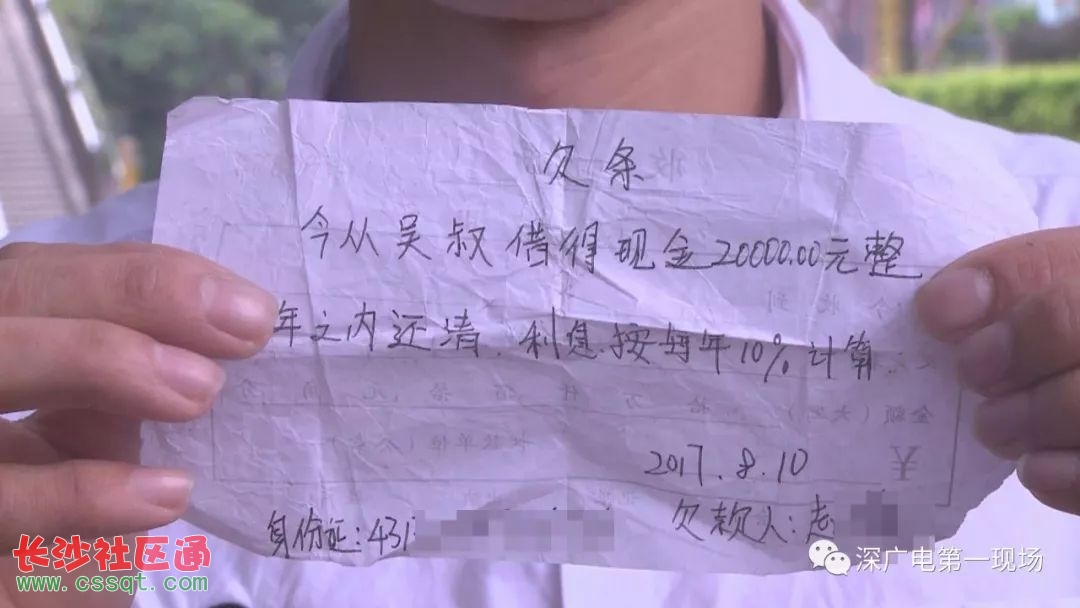 欠条
今从吴叔借得现金20000.00元整
年之内还清.利息按每年10%计算
2017.8.10
身份证:431
欠款人:
长沙社区通
www.cssqt.com
深广电第一现场